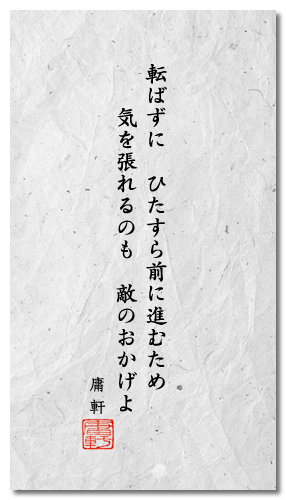 転ばずに　ひたすら前に進むため
気を張れるのも　敵のおかげよ
庸軒